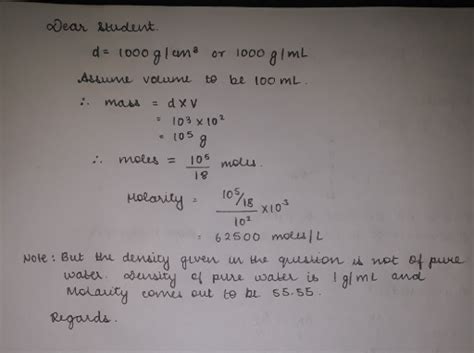 Dear Student.
d = 1000 g/cm³ or 1000 g/mL
Assume volume to be 100 mL.
∴ mass = d x V
= 10³ x 10²
= 10⁵ g
∴ moles = 10⁵/18 moles.
Molarity = (10⁵/18)/10² x10⁻³
= 62500 moles/L
Note: But the density given in the question is not of pure
water. Density of pure water is 1 g/mL and
Molarity comes out to be 55.55.
Regards.